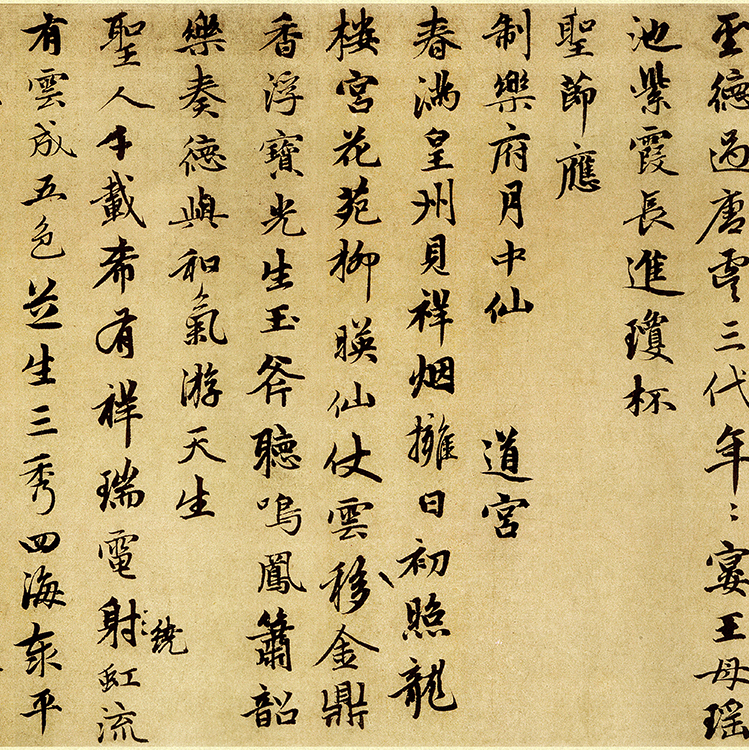 聖德過唐虞三代年々宴王母瑶
池紫霞長進瓊杯
聖節應
制樂府月中仙 道宮
春滿皇州見祥烟擁日初照龍
樓宮花苑柳暎仙仗雲移金鼎
香浮寶光生玉斧聽鳴鳳簫韶
樂奏德與和氣游天生
聖人千載希有祥瑞電射虹流
繞
有雲成五色芝生三秀四海泰平